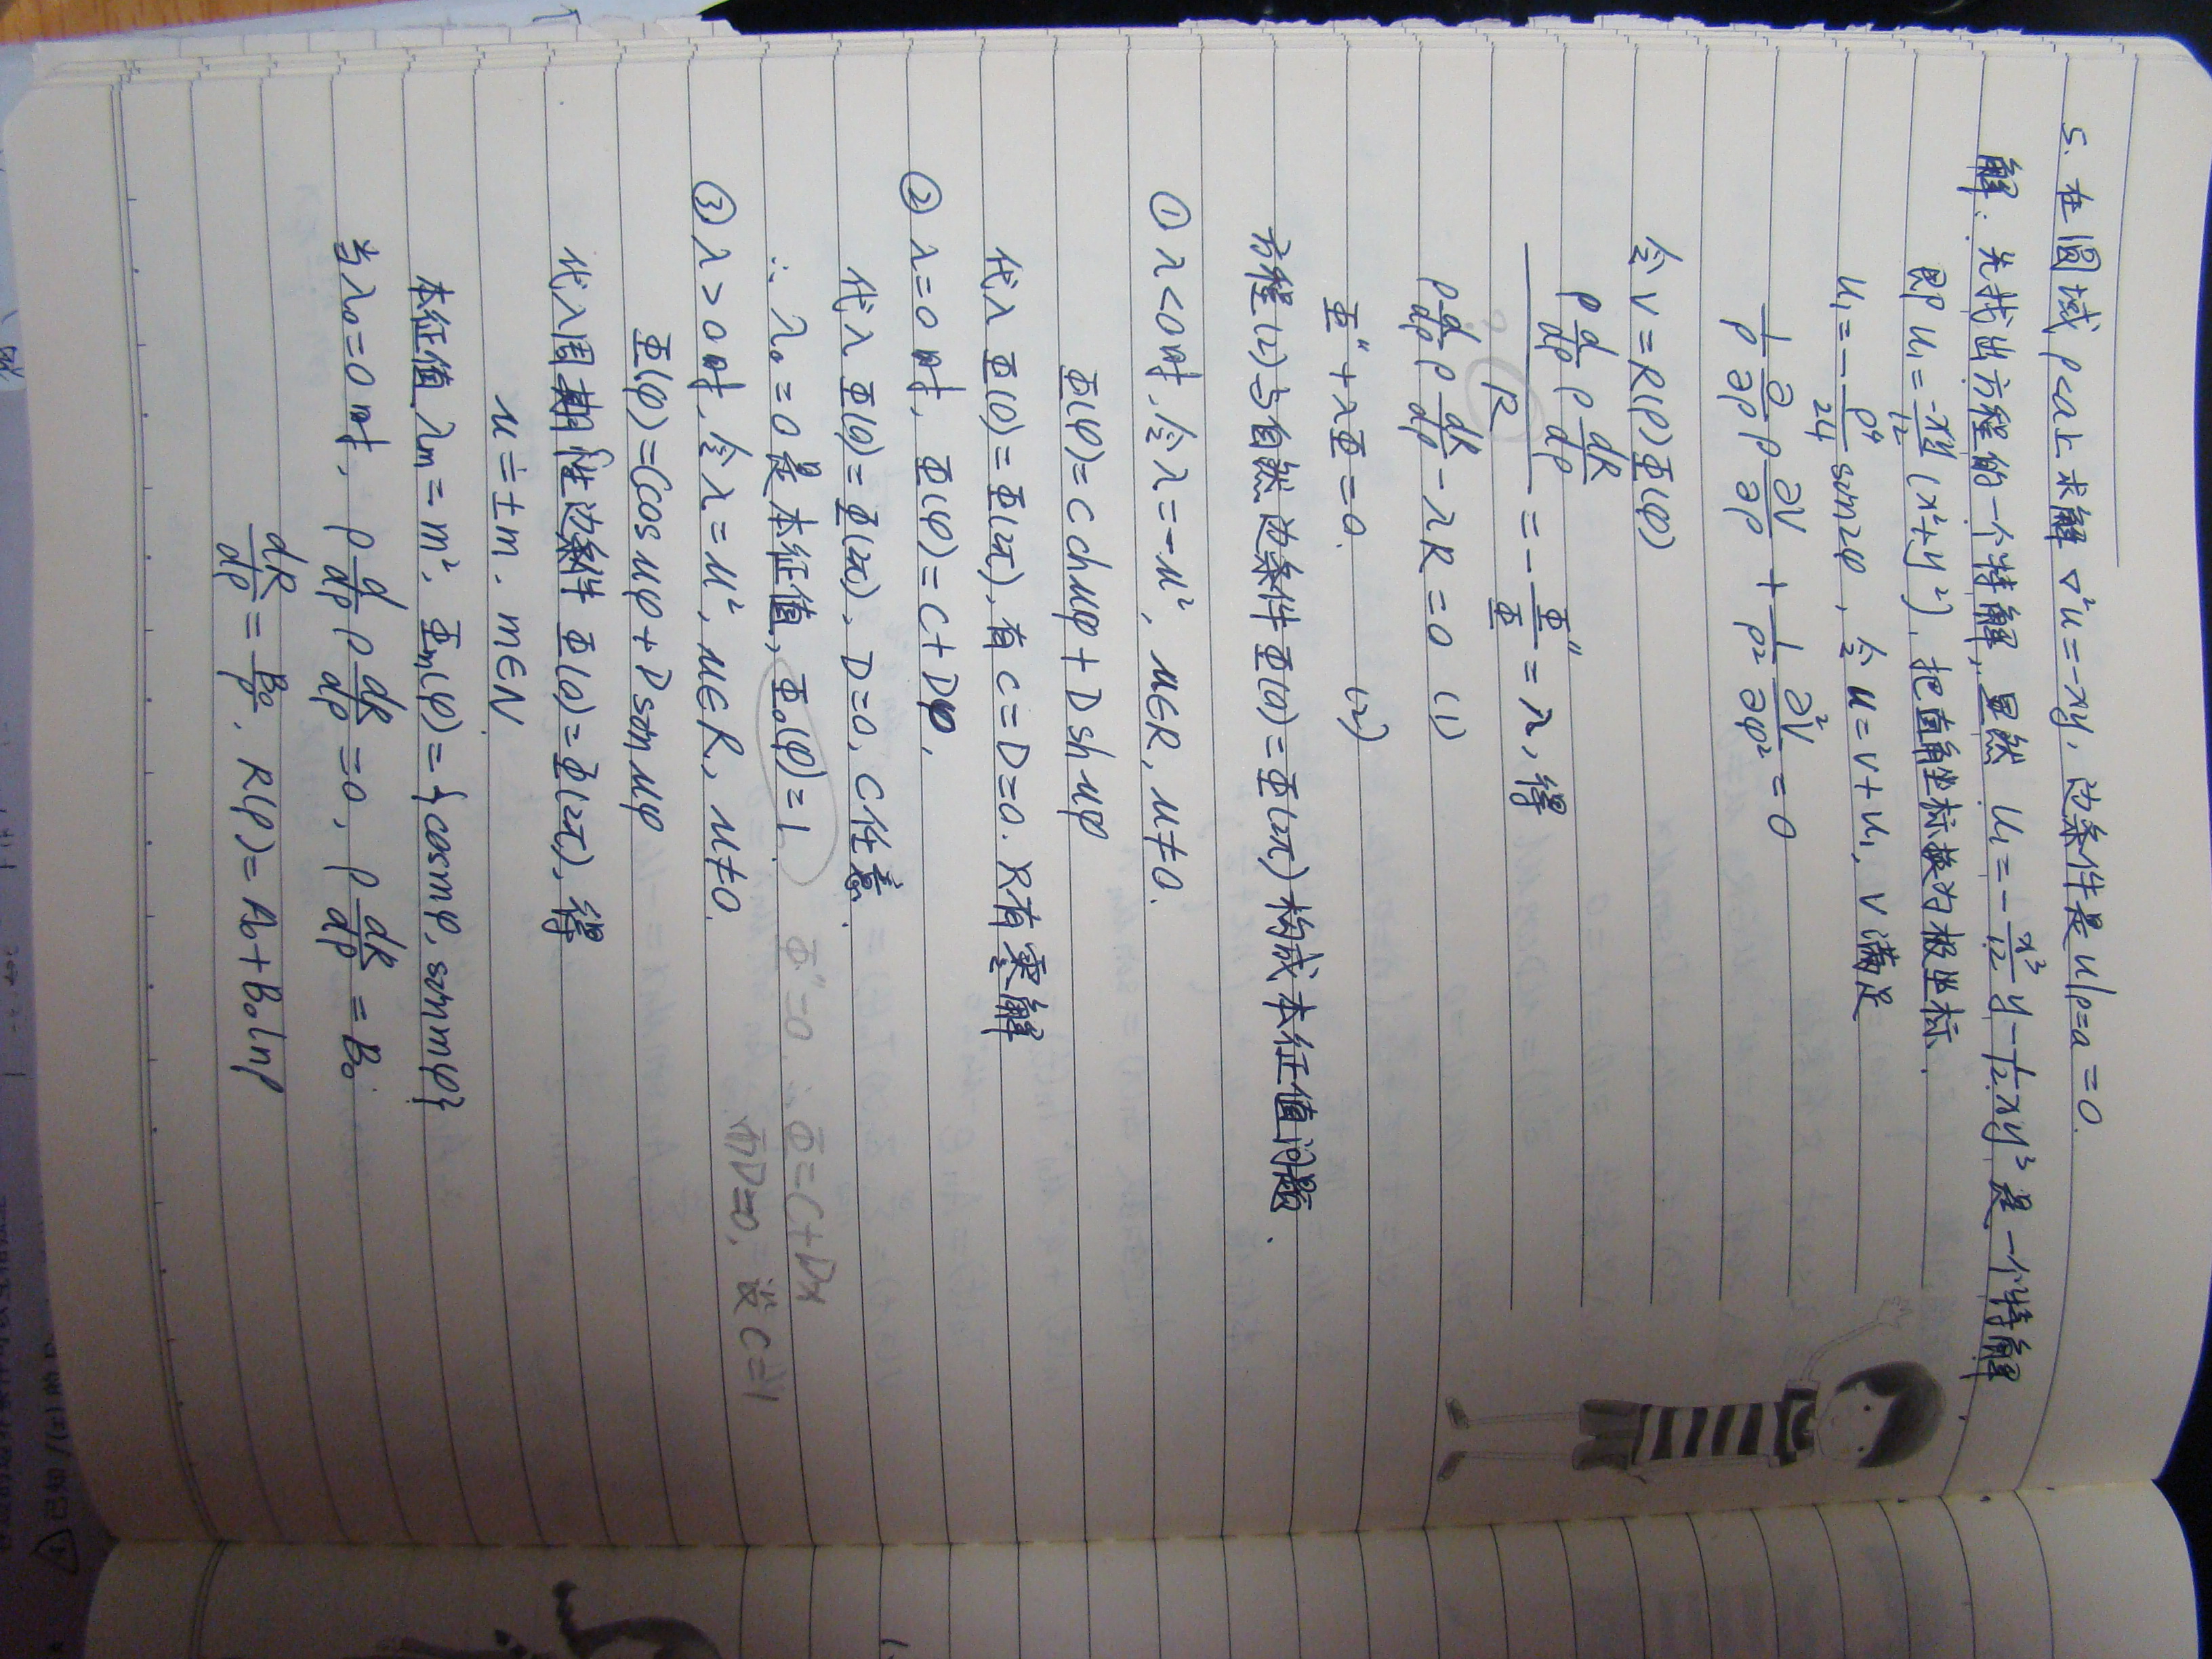 5. 在圆域 ρ<a上求解 ∇²u=-xy, 边条件是 u|ρ=a =0.
解: 先找出方程的一个特解, 显然 u₁=-x³/12 y-1/12 xy³ 是一个特解
即 u₁=-xy/12 (x²+y²), 把直角坐标换为极坐标.
u₁=-ρ⁴/24 sin2φ, 令 u=v+u₁, v满足
1/ρ ∂/∂ρ ρ ∂v/∂ρ + 1/ρ² ∂²v/∂φ² = 0
令 v=R(ρ)Φ(φ)
ρ d/dρ ρ dR/dρ / R = - Φ''/Φ = λ, 得
ρ d/dρ ρ dR/dρ - λR=0 (1)
Φ''+λΦ=0. (2)
方程(2)与自然边条件 Φ(0)=Φ(2π) 构成本征值问题.
① λ<0时, 令λ=-μ², μ∈R, μ≠0.
Φ(φ)=C chμφ+D shμφ
代入 Φ(0)=Φ(2π), 有 C=D=0. 只有零解
② λ=0时, Φ(φ)=C+Dφ,
代入 Φ(0)=Φ(2π), D=0, C任意.
∴ λ₀=0 是本征值, Φ₀(φ)=1. Φ''=0. ∴ Φ=C+Dx
③ λ>0时, 令λ=μ², μ∈R, μ≠0. 而D=0, 设C=1
Φ(φ)=Ccosμφ+Dsinμφ
代入周期性边条件 Φ(0)=Φ(2π), 得
μ=±m, m∈N
本征值 λm=m², Φm(φ)={cosmφ, sinmφ}
当λ₀=0时, ρ d/dρ ρ dR/dρ =0, ρ dR/dρ = B₀
dR/dρ = B₀/ρ, R(ρ)=A₀+B₀lnρ